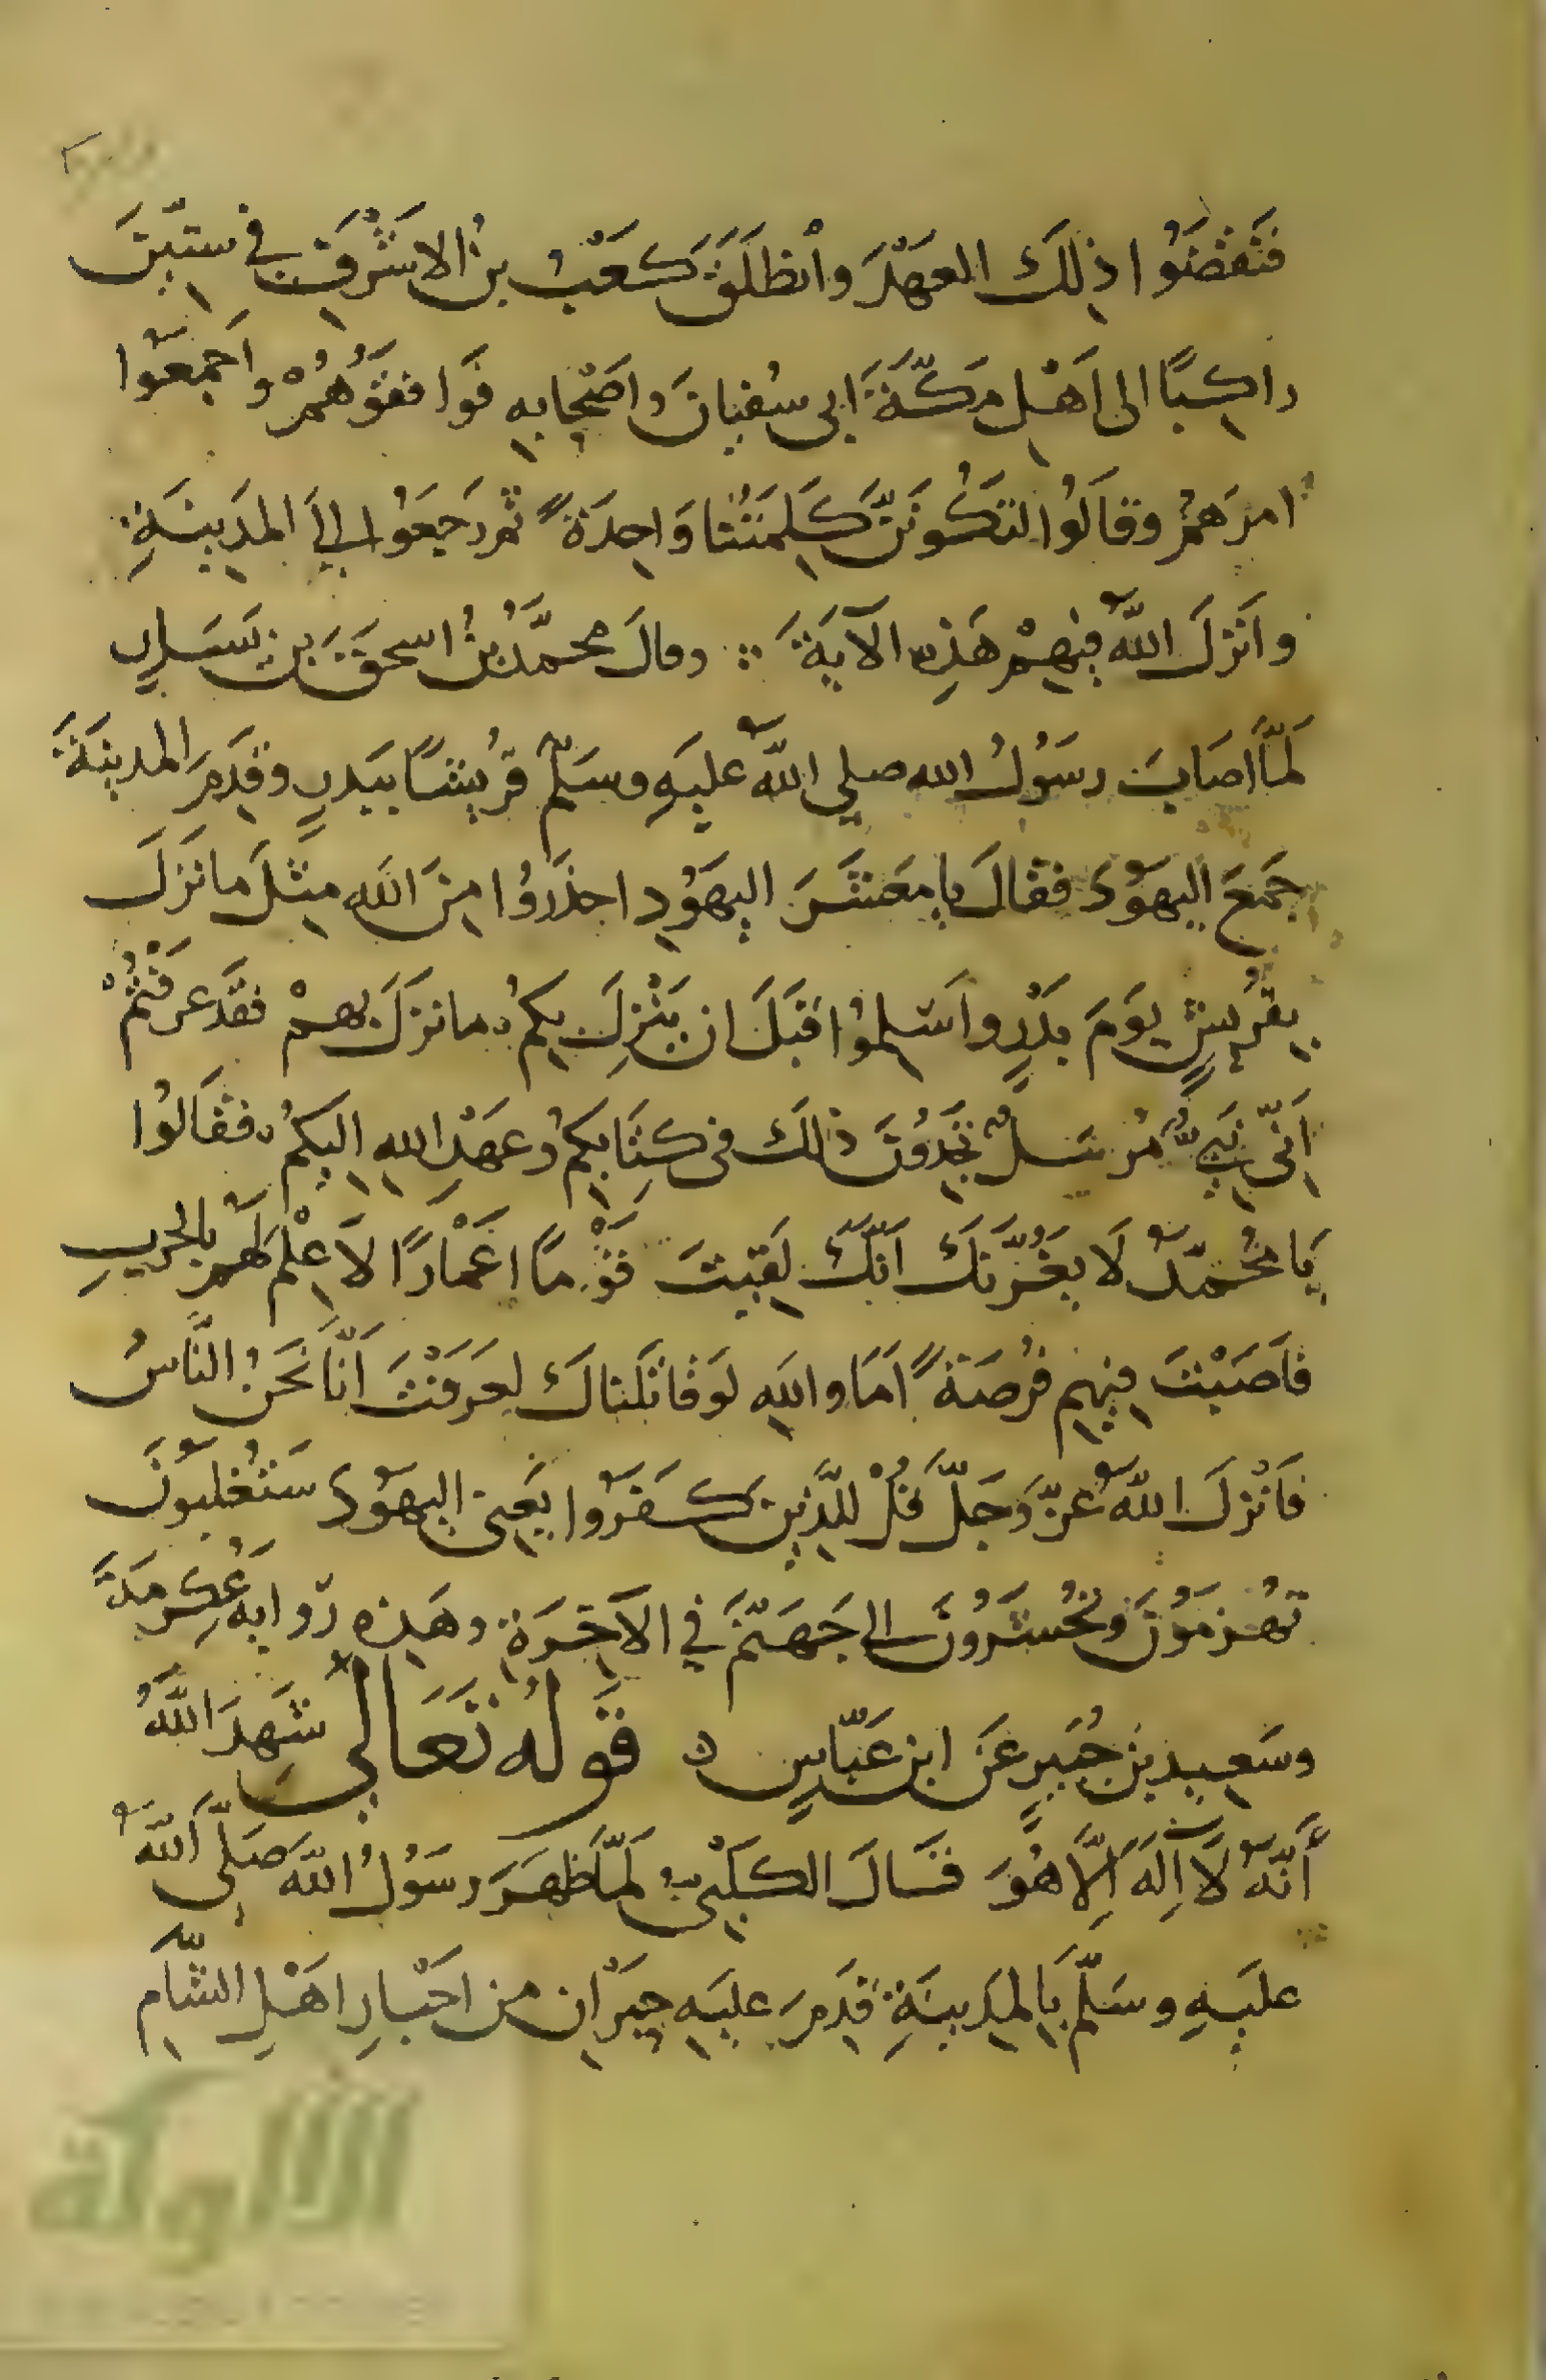 فَنَقَضُوا ذلِكَ العَهْدَ وانْطَلَقَ كَعْبُ بنُ الاشْرَفِ في ستِّينَ
راكِبًا الى اَهْلِ مَكَّةَ اَبى سُفيانَ واصْحابِهِ فوَافَقوُهُمْ واَجمَعُوا
امرَهُمْ وقالُوا لتكُونَنَّ كَلِمَتُنا وَاحِدَةً ثم رَجَعُوا إلىَ المَدِينَةِ
وانَزَلَ اللهُ فِيهِمْ هَذِه الآيَةَ وقالَ محمَّدُ بنُ اسحقَ بنِ يَسَارٍ
لَمَّا اَصَابَ رسَوُلُ الله صلي اللهُ عليَهِ وسَلّمَ قرُيشًا بِبَدرٍ وقَدِمَ المدينَةَ
جَمَعَ اليهَوُدَ فقالَ يا مَعشَرَ اليهَوُدِ احذَرَوُا مِنَ اللهِ مِثلَ مانَزَلَ
بِقُرَيشٍ يوَمَ بَدْرٍ واَسْلِموُا قبَلَ ان يَنْزِلَ بِكمُ ما نزَلَ بِهِمْ فقَدْ عرَفْتُمْ
اِنّى نَبِيٌّ مُرسَلٌ تجِدُونَ ذلكَ فى كِتَابِكُمْ وعَهْدِ اللهِ اِليكُمْ فقَالُوا
يَا مُحَمّدُ لَا يغُرَّنكَ اَنّكَ لَقِيتَ قَوْمًا اغْمَارًا لاَ عِلْمَ لهَمُ بالحَربِ
فاَصَبْتَ فِيهِم فُرصَةً اَمَا واللهِ لوَ قاتَلناكَ لعَرَفْتَ اَنَّا نَحنُ النَّاسُ
فاَنْزَلَ اللهُ عزَّ وَجَلَّ قُلْ للَّذِينَ كَفَرُوا يَعنِى اليهَوُدَ سَتُغلَبُونَ
تُهْزَمُوَنَ وتُحْشَرُونَ الى جَهَنَّمَ في الآخِرَةِ وهَذِه رِوايةُ عِكرِمَةَ
وسَعِيدِ بنِ جُبَيرٍ عَن ابنِ عَبّاسٍ ه قوَلهُ تَعَالىَ شَهِدَ اللهُ
أَنّهُ لَا اِلَهَ اِلّا هُوَ قالَ الكلَبْىُّ لَمّا ظَهَرَ رسَوُلُ اللهِ صَلىَّ اللهُ
عليَهِ وسَلّمَ بِالمَدِينَةِ قَدِمَ عليَهِ حِبَرْانِ من احَبْارِ اهَلِ الشّامِ
الألوكة